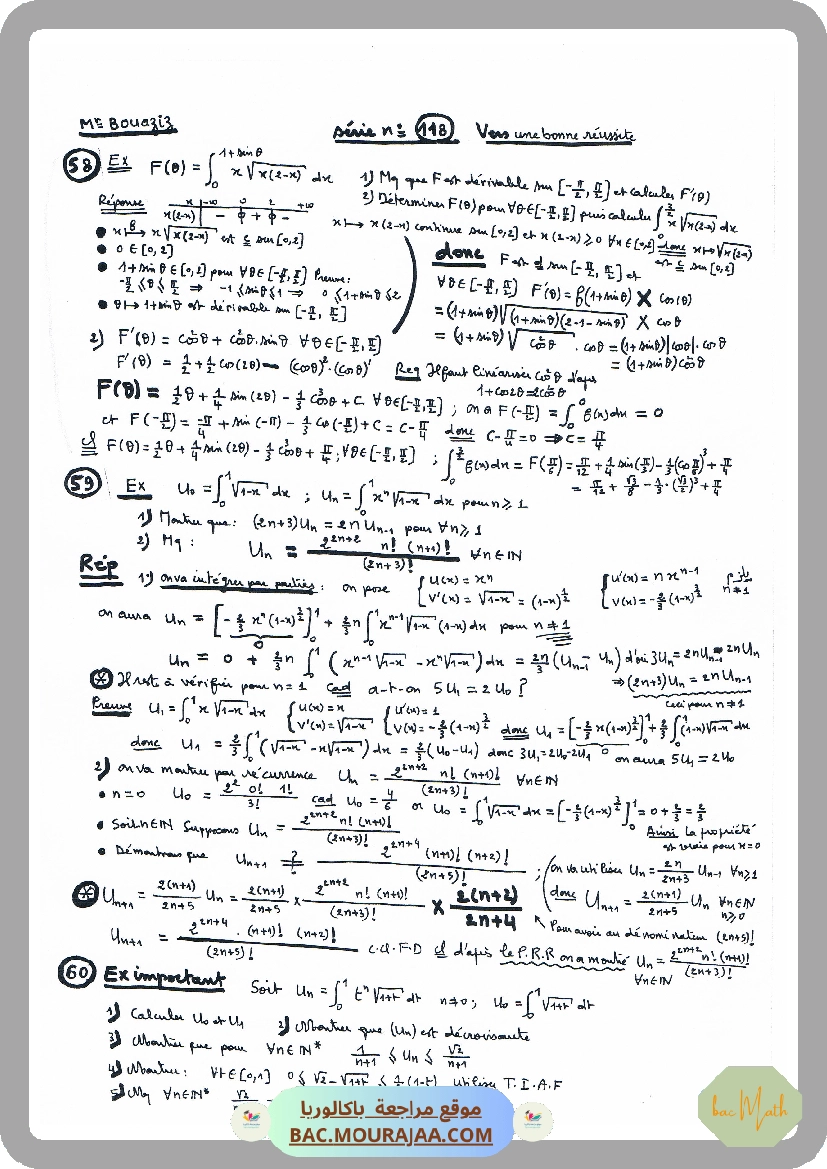 Mr Bouaziz
série n° 118 Vers une bonne réussite
58 Ex F(θ) = ∫₀^{1+sinθ} x√(x(2-x)) dx
1) Mq que F est dérivable sur [-π/2, π/2] et calculer F'(θ)
2) Déterminer F(θ) pour ∀θ∈[-π/2, π/2] puis calculer ∫₀^{3/2} x√(x(2-x)) dx
Réponse
x -∞ 0 2 +∞
x(2-x) - 0 + 0 -
x ↦ x(2-x) continue sur [0,2] et x(2-x) ≥ 0 ∀x∈[0,2] donc x ↦ √(x(2-x)) est c sur [0,2]
• x ↦ x√(x(2-x)) est c sur [0,2]
• 0 ∈ [0,2]
• 1+sinθ ∈ [0,2] pour ∀θ∈[-π/2, π/2] Preuve:
-π/2 ≤ θ ≤ π/2 ⇒ -1 ≤ sinθ ≤ 1 ⇒ 0 ≤ 1+sinθ ≤ 2
• θ ↦ 1+sinθ est dérivable sur [-π/2, π/2]
donc F est d sur [-π/2, π/2] et
∀θ∈[-π/2, π/2] F'(θ) = f(1+sinθ) × cos(θ)
= (1+sinθ)√((1+sinθ)(2-1-sinθ)) × cosθ
= (1+sinθ)√(cos²θ) . cosθ = (1+sinθ)|cosθ| . cosθ
= (1+sinθ)cos²θ
2) F'(θ) = cos²θ + cos²θ . sinθ ∀θ∈[-π/2, π/2]
F'(θ) = 1/2 + 1/2 cos(2θ) - (cosθ)² . (cosθ)'
Req Il faut linéariser cos²θ d'aps
1+cos2θ=2cos²θ
F(θ) = 1/2 θ + 1/4 sin(2θ) - 1/3 cos³θ + C. ∀θ∈[-π/2, π/2] ; on a F(-π/2) = ∫₀⁰ f(x)dx = 0
et F(-π/2) = -π/4 + sin(-π) - 1/3 cos(-π/2) + C = C - π/4 donc C - π/4 = 0 ⇒ C = π/4
F(θ) = 1/2 θ + 1/4 sin(2θ) - 1/3 cos³θ + π/4 ; ∀θ∈[-π/2, π/2] ; ∫₀^{3/2} f(x)dx = F(π/6) = π/12 + 1/4 sin(π/3) - 1/3 (cos π/6)³ + π/4
= π/12 + √3/8 - 1/3 . (√3/2)³ + π/4
59 Ex U₀ = ∫₀¹ √(1-x) dx ; Uₙ = ∫₀¹ xⁿ√(1-x) dx pour n ≥ 1
1) Montrer que : (2n+3)Uₙ = 2n Uₙ₋₁ pour ∀n ≥ 1
2) Mq : Uₙ = 2^{2n+2} n! (n+1)! / (2n+3)! ∀n∈IN
Rép
1°) on va intégrer par parties : on pose { U(x) = xⁿ { U'(x) = n xⁿ⁻¹
V'(x) = √(1-x) = (1-x)^{1/2} V(x) = -2/3 (1-x)^{3/2} n ≠ 1
on aura Uₙ = [-2/3 xⁿ(1-x)^{3/2}]₀¹ + 2/3 n ∫₀¹ xⁿ⁻¹√(1-x) (1-x) dx pour n ≠ 1
0
Uₙ = 0 + 2/3 n ∫₀¹ (xⁿ⁻¹√(1-x) - xⁿ√(1-x)) dx = 2n/3 (Uₙ₋₁ - Uₙ) d'où 3Uₙ = 2nUₙ₋₁ - 2nUₙ
⇒ (2n+3)Uₙ = 2n Uₙ₋₁
Ceci pour n ≠ 1
* Il rest à vérifier pour n = 1 cad a-t-on 5U₁ = 2U₀ ?
Preuve U₁ = ∫₀¹ x√(1-x) dx { U(x) = x { U'(x) = 1
V'(x) = √(1-x) V(x) = -2/3 (1-x)^{3/2} donc U₁ = [-2/3 x(1-x)^{3/2}]₀¹ + 2/3 ∫₀¹ (1-x)√(1-x) dx
0
donc U₁ = 2/3 ∫₀¹ (√(1-x) - x√(1-x)) dx = 2/3 (U₀ - U₁) donc 3U₁ = 2U₀ - 2U₁ on aura 5U₁ = 2U₀
2) on va montrer par récurrence Uₙ = 2^{2n+2} n! (n+1)! / (2n+3)! ∀n∈IN
• n = 0 U₀ = 2² 0! 1! / 3! cad U₀ = 4/6 or U₀ = ∫₀¹ √(1-x) dx = [-2/3 (1-x)^{3/2}]₀¹ = 0 + 2/3 = 2/3
Ainsi la propriété est vraie pour n = 0
• Soit n∈IN Supposons Uₙ = 2^{2n+2} n! (n+1)! / (2n+3)!
• Démontrons que Uₙ₊₁ =? 2^{2n+4} (n+1)! (n+2)! / (2n+5)! ; on va utiliser Uₙ = 2n/(2n+3) Uₙ₋₁ ∀n ≥ 1
donc Uₙ₊₁ = 2(n+1)/(2n+5) Uₙ ∀n∈IN n ≥ 0
* Uₙ₊₁ = 2(n+1)/(2n+5) Uₙ = 2(n+1)/(2n+5) × 2^{2n+2} n! (n+1)! / (2n+3)! × 2(n+2)/(2n+4)
Pour avoir au dénominateur (2n+5)!
Uₙ₊₁ = 2^{2n+4} . (n+1)! (n+2)! / (2n+5)! C.Q.F.D d'après le P.R.R on a montré Uₙ = 2^{2n+2} n! (n+1)! / (2n+3)!
∀n∈IN
60 Ex important Soit Uₙ = ∫₀¹ tⁿ √(1+t) dt n ≠ 0 ; U₀ = ∫₀¹ √(1+t) dt
1) Calculer U₀ et U₁ 2) Montrer que (Uₙ) est décroissante
3) Montrer que pour ∀n∈IN* 1/(n+1) ≤ Uₙ ≤ √2/(n+1)
4) Montrer : ∀t∈[0,1] 0 ≤ √2 - √(1+t) ≤ 1/2 (1-t) utiliser T.I.A.F
5) Mq ∀n∈IN* √2
موقع مراجعة باكالوريا
BAC.MOURAJAA.COM
bacMath